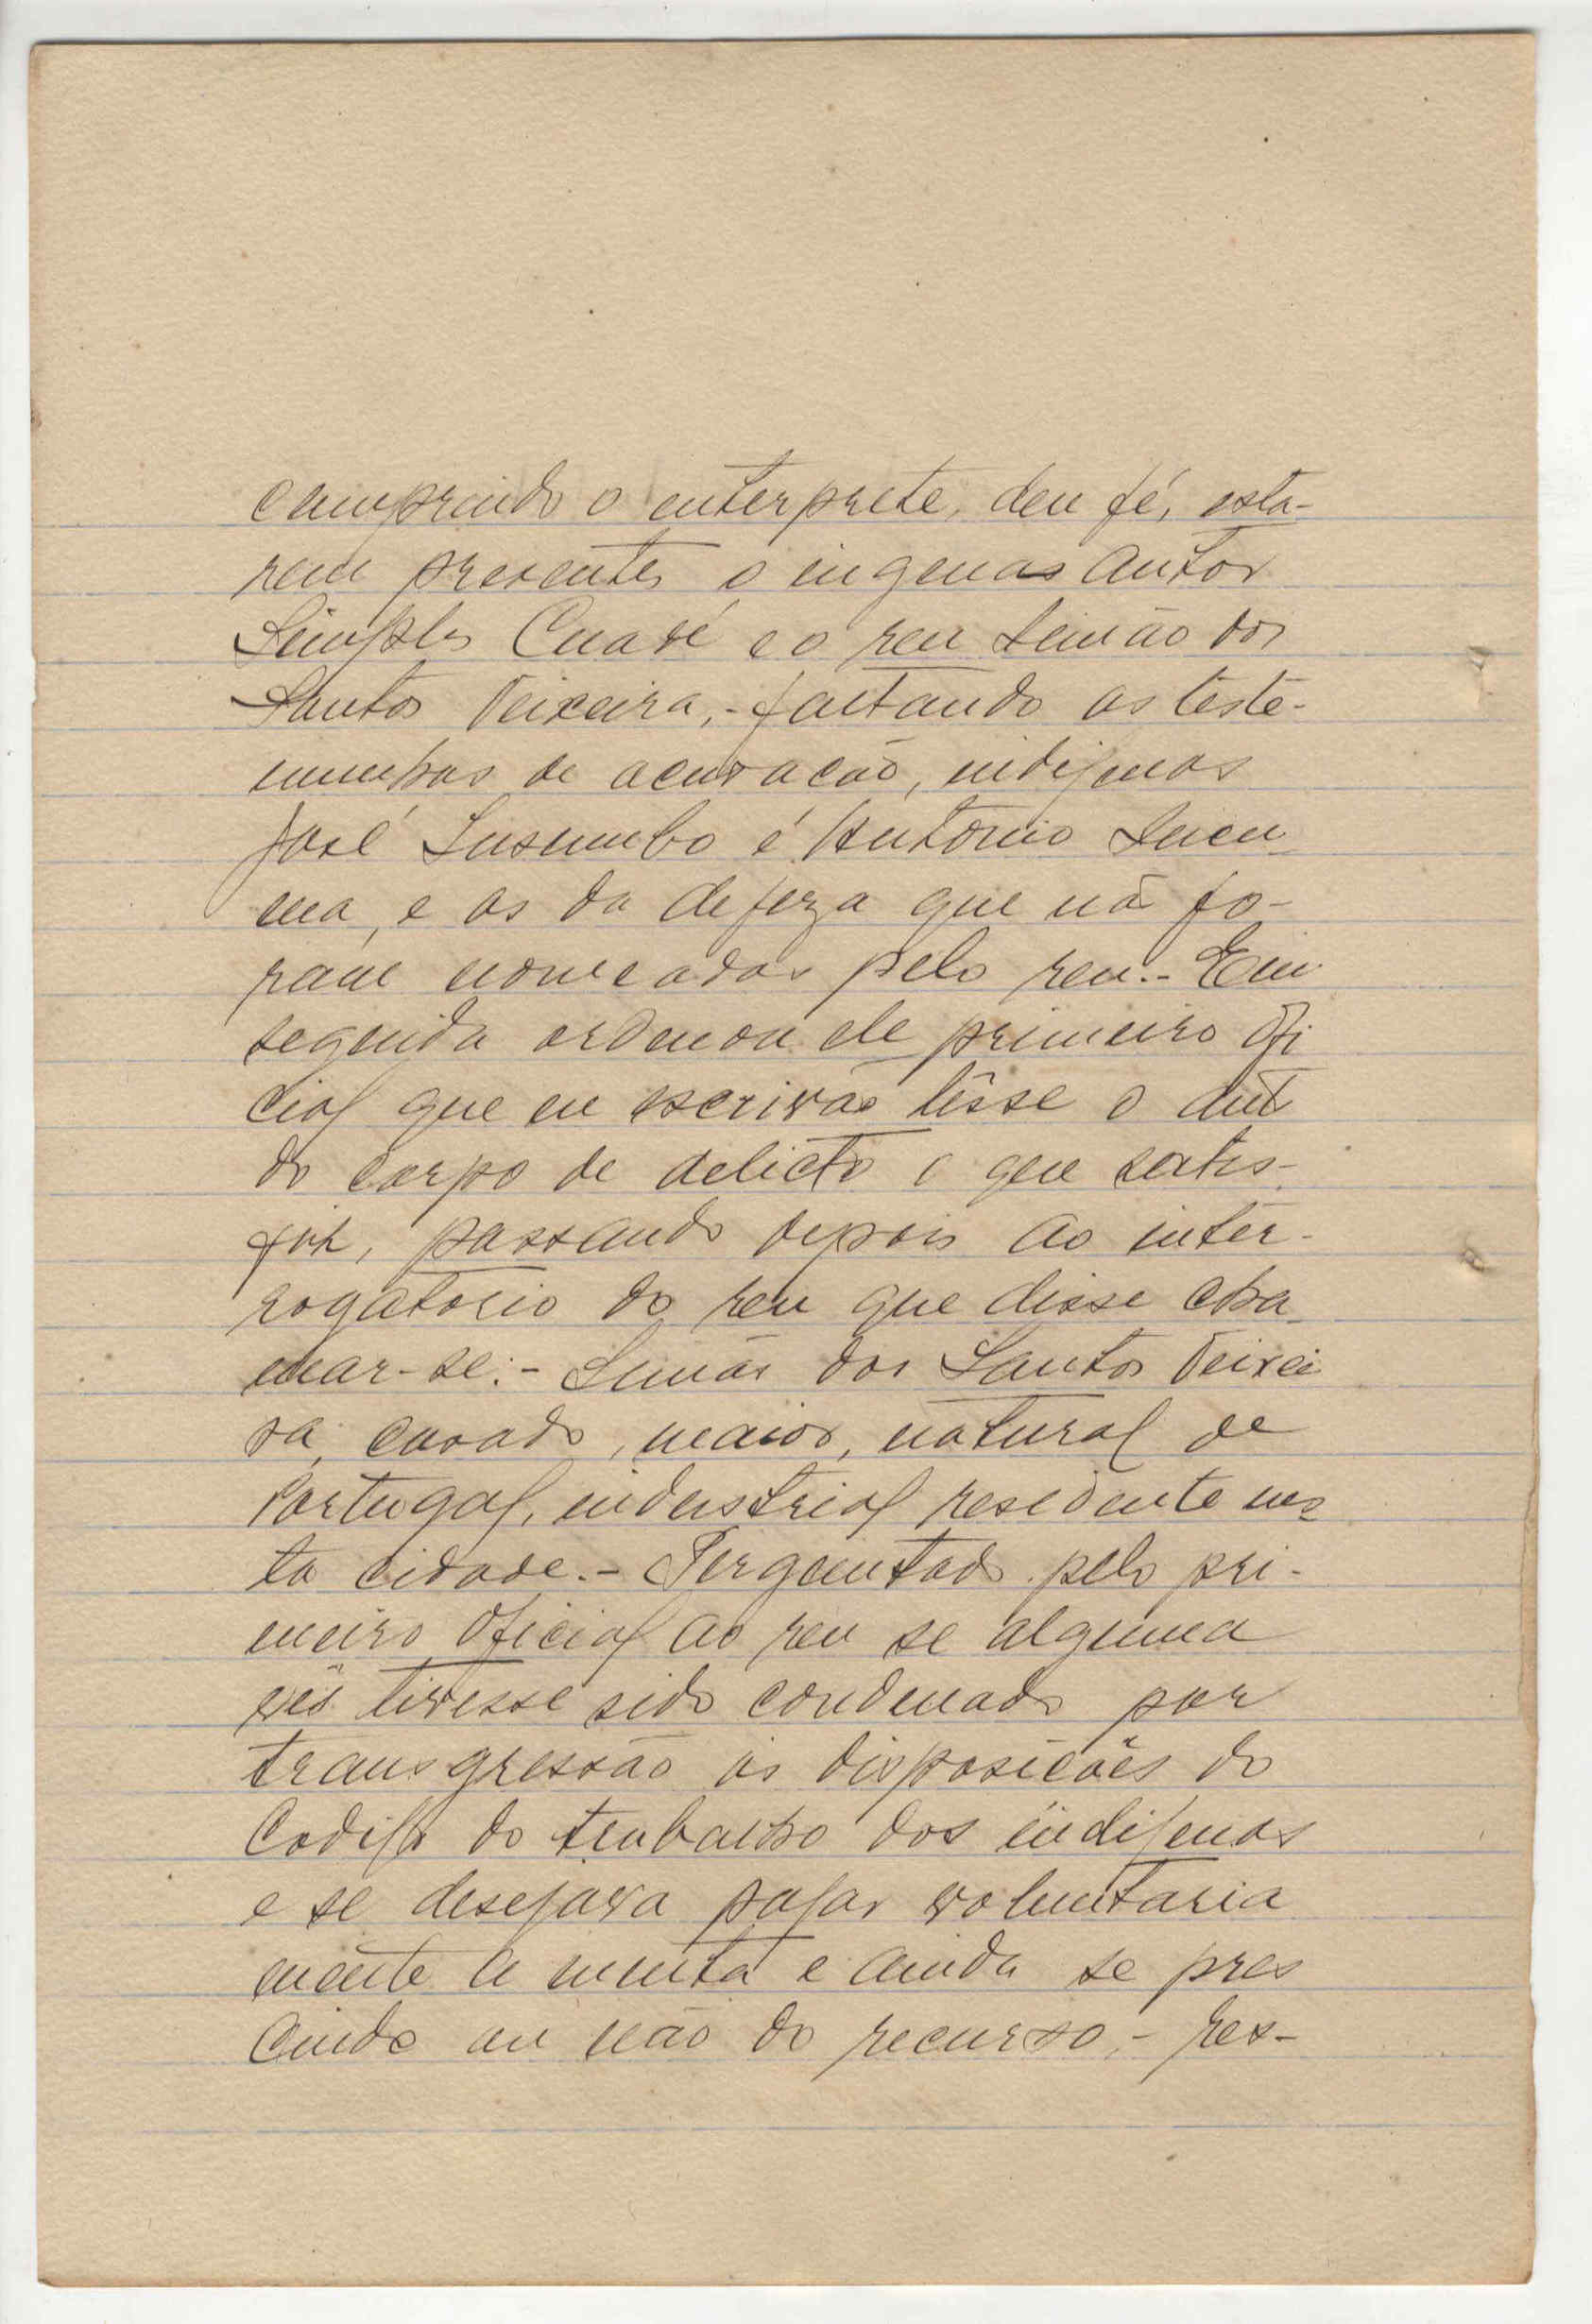 comprindo o enterprete, deu fé, esta-
rem presentes o ingenas autor
Simples Cuavé e o reu Simão dos
Santos Teixeira,- faltando as teste-
munhas de acusação, indigenas
José Lusumbo é Antonio
ma, e as da defeza que não fo-
ram nomeadas pelo reu.- Em
seguida ordenou ele primeiro Ofi
cial que eu escrivão lêsse o aut
do corpo de delicto o que satis-
fiz, passando depois ao inter-
rogatorio do reu que disse cha
mar-se:- Simão dos Santos Teixei
ra, casado, maior, natural de
Portugal, industrial residente nes
ta cidade.- Perguntado pelo pri-
meiro Oficial ao reu se alguma
vês tivesse sido condenado por
transgressão ás disposições do
Codigo do trabalho dos indigenas
e se desejava pagar voluntaria
mente a multa e ainda se pres
cinde ou não do recurso,- res-